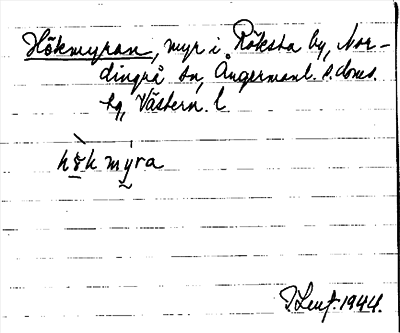 Hökmyran, myr i Röksta by, Nor-
dingrå sn, Ångermanl. s. doms.
hg, Västern. l
hö̀k mýra
1944.